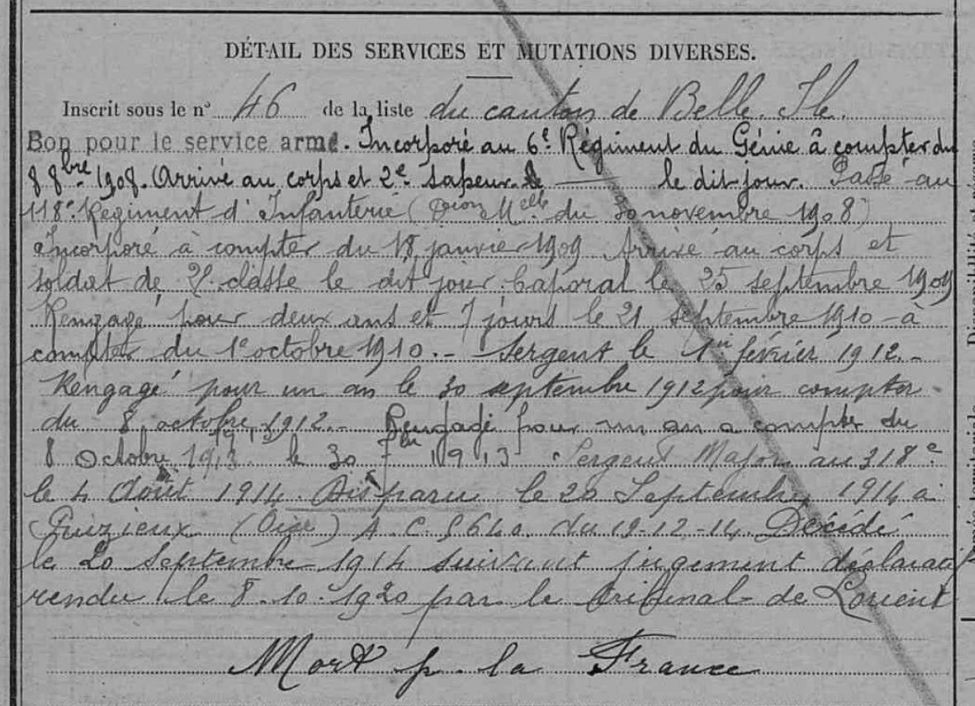 DÉTAIL DES SERVICES ET MUTATIONS DIVERSES.
Inscrit sous le nº 46 de la liste du canton de Belle Ile.
Bon pour le service armé. Incorporé au 6e Régiment du Génie à compter du
8 8bre 1908. Arrivé au corps et 2e sapeur le dit jour. Passé au
118e Régiment d'Infanterie (Dion Melle du 30 novembre 1908)
Incorporé à compter du 18 janvier 1909 Arrivé au corps et
soldat de 2e classe le dit jour. Caporal le 25 septembre 1909
Rengagé pour deux ans et 7 jours le 21 septembre 1910 à
compter du 1e octobre 1910. - Sergent le 1er février 1912. -
Rengagé pour un an le 30 septembre 1912 pour compter
du 8 octobre 1912. - Rengagé pour un an a compter du
8 Octobre 1913 le 30 7bre 1913 Sergent Major au 318e
le 4 Août 1914. Disparu le 20 Septembre 1914 à
(Oise) A.C. 5640 du 19-12-14. Décédé
le 20 Septembre 1914 suivant jugement déclaratif
rendu le 8.10.1920 par le tribunal de Lorient
Mort p. la France